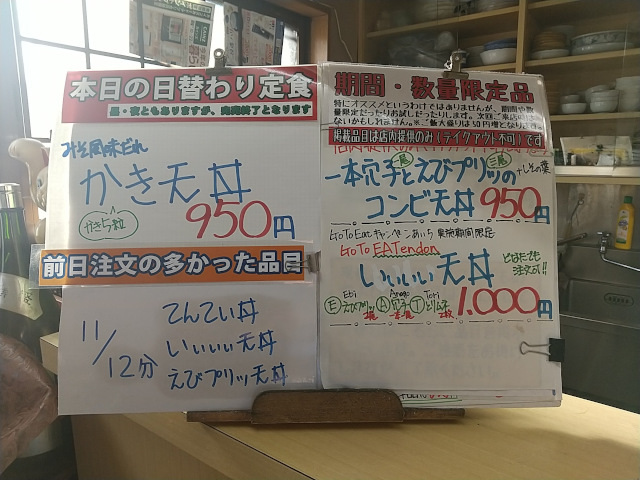 本日の日替わり定食
昼・夜ともありますが、完売終了となります
みそ風味だれ
かき天丼
かき5粒
950円
前日注文の多かった品目
11/12分
てんてい丼
いいいい天丼
えびプリッツ天丼
期間・数量限定品
特にオススメというわけではありませんが、期間限定や数
量限定だったりお試しだったりします。次回ご来店の際は
ないかもしれません。※ご飯大盛りは50円増となります。
掲載品目は店内提供のみ(テイクアウト不可)です
一本穴子とえびプリッツの
+しその葉
コンビ天丼 950円
GoTo Eatキャンペーンあいち 実施期間限定
GoTo EATendon
いいいい天丼
どなたでも
注文可!!
Ebi Anago Tori
1.000円